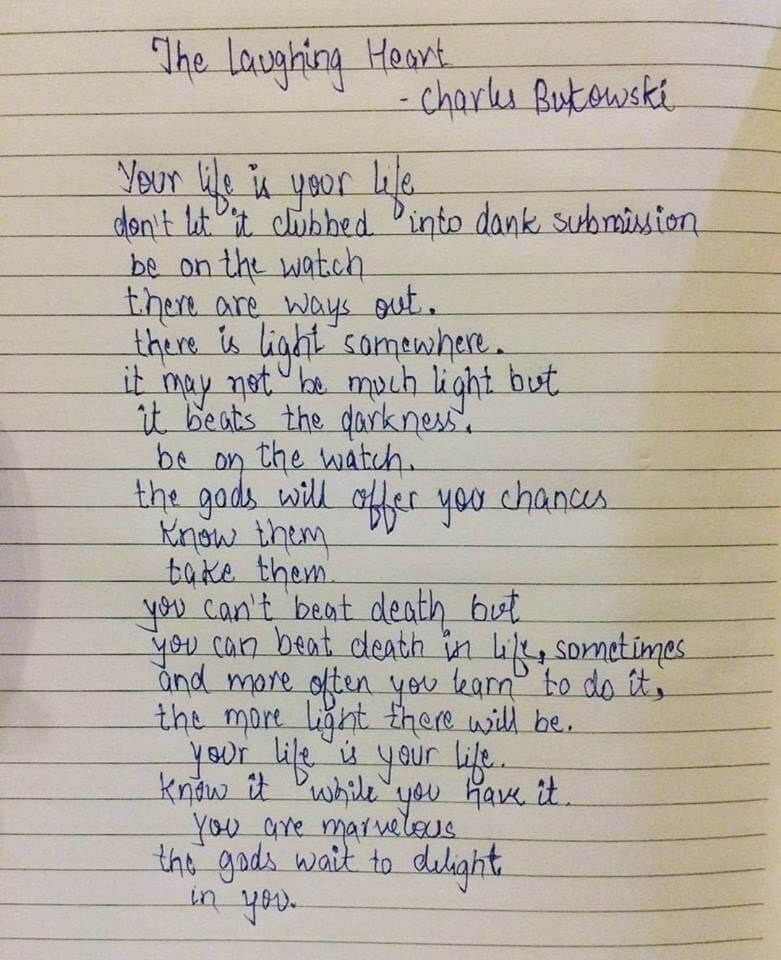 The Laughing Heart
- Charles Bukowski
Your life is your life
don't let it clubbed into dank submission
be on the watch
there are ways out.
there is light somewhere.
it may not be much light but
it beats the darkness.
be on the watch.
the gods will offer you chances
know them
take them.
you can't beat death but
you can beat death in life, sometimes
and more often you learn to do it,
the more light there will be.
your life is your life.
know it while you have it.
you are marvelous
the gods wait to delight
in you.